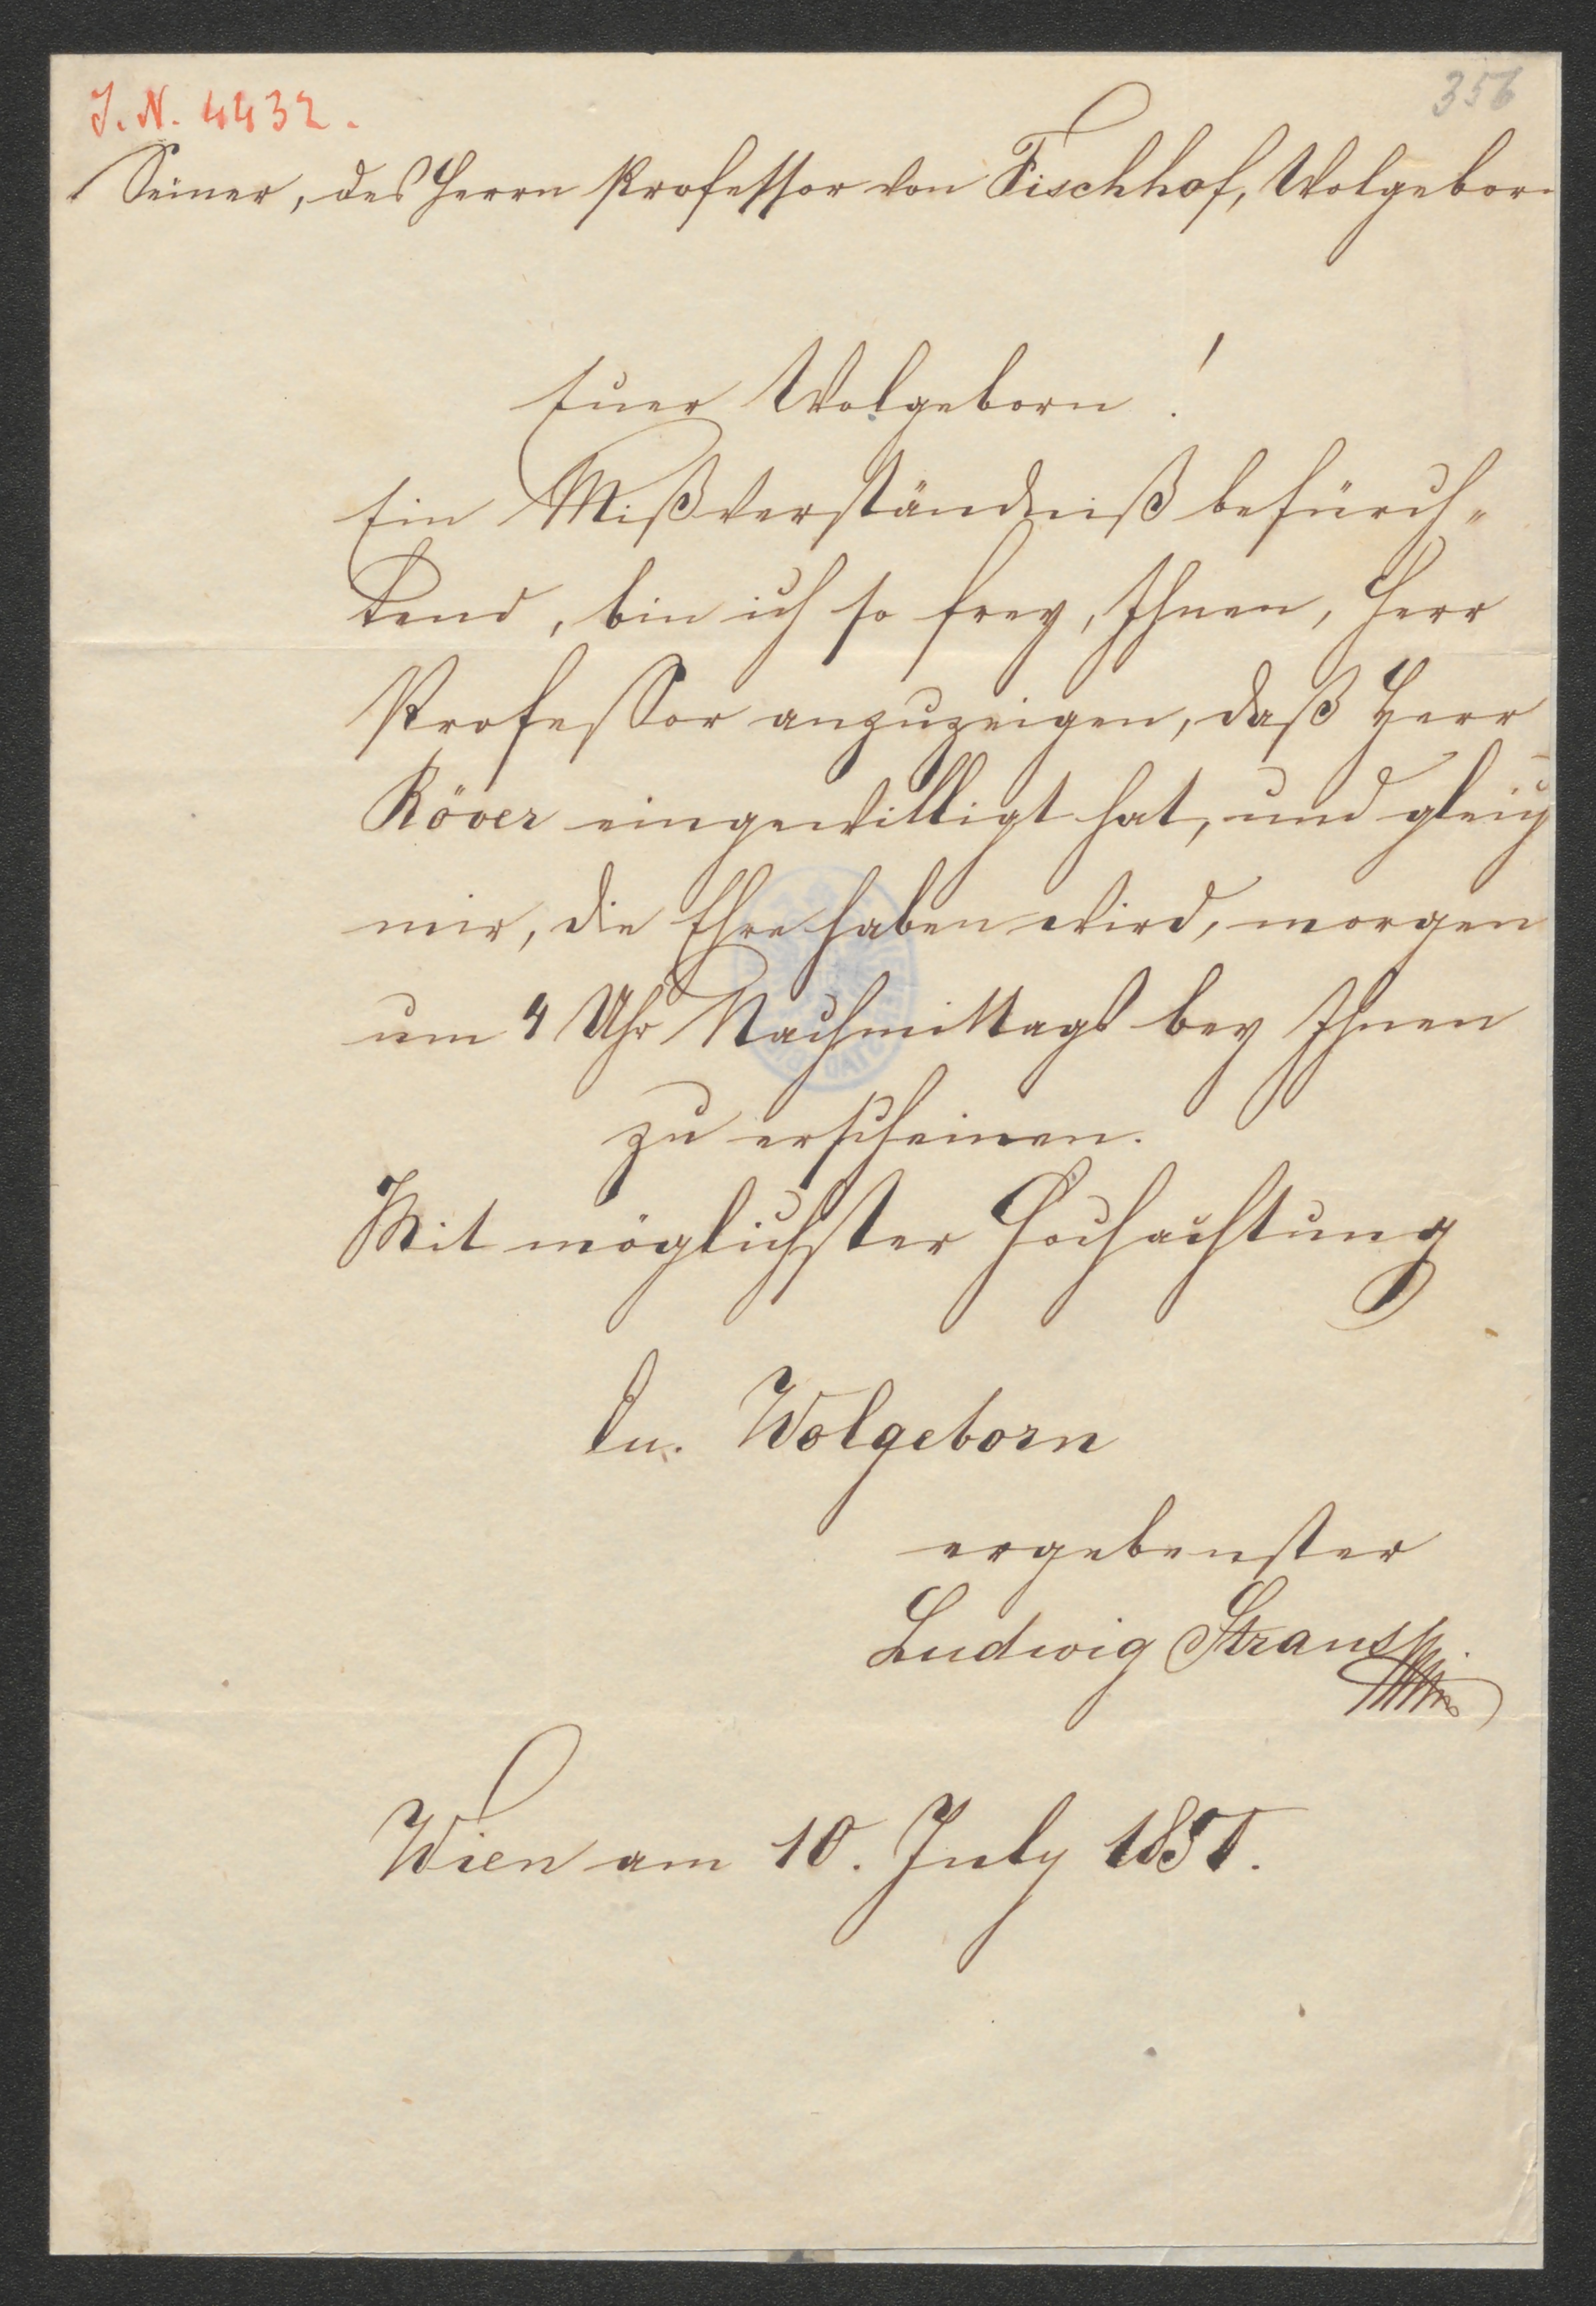 J. N. 4432.
356
Seiner, des Herrn Professor von Fischhof, Wolgebor.
Euer Wolgeborn!
Ein Mißverständniß befürch-
tend, bin ich so frey, Ihnen, Herr
Professor anzuzeigen, daß Herr
Röver eingewilligt hat, und gleich
mir, die Ehre haben wird, morgen
um 4 Uhr Nachmittags bey Ihnen
zu erscheinen.
Mit möglichster Hochachtung
Eu. Wolgeborn
ergebenster
Ludwig Strauss
Wien am 10. July 1851.